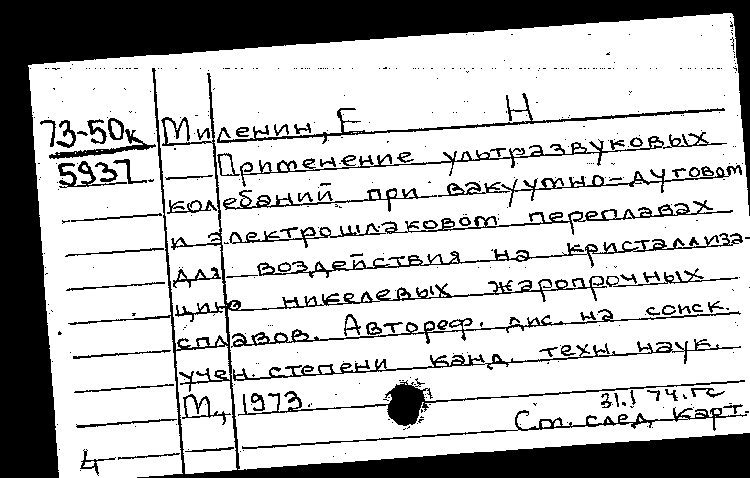 73-50к Миленин, Е Н
5937 Применение ультразвуковых
колебаний при вакуумно-дуговом
и электрошлаковом переплавах
для воздействия на кристаллиза-
цию никелевых жаропрочных
сплавов. Автореф. дис. на соиск.
учен. степени канд. техн. наук.
М., 1973.
31.I 74.гс
См. след. карт.
4